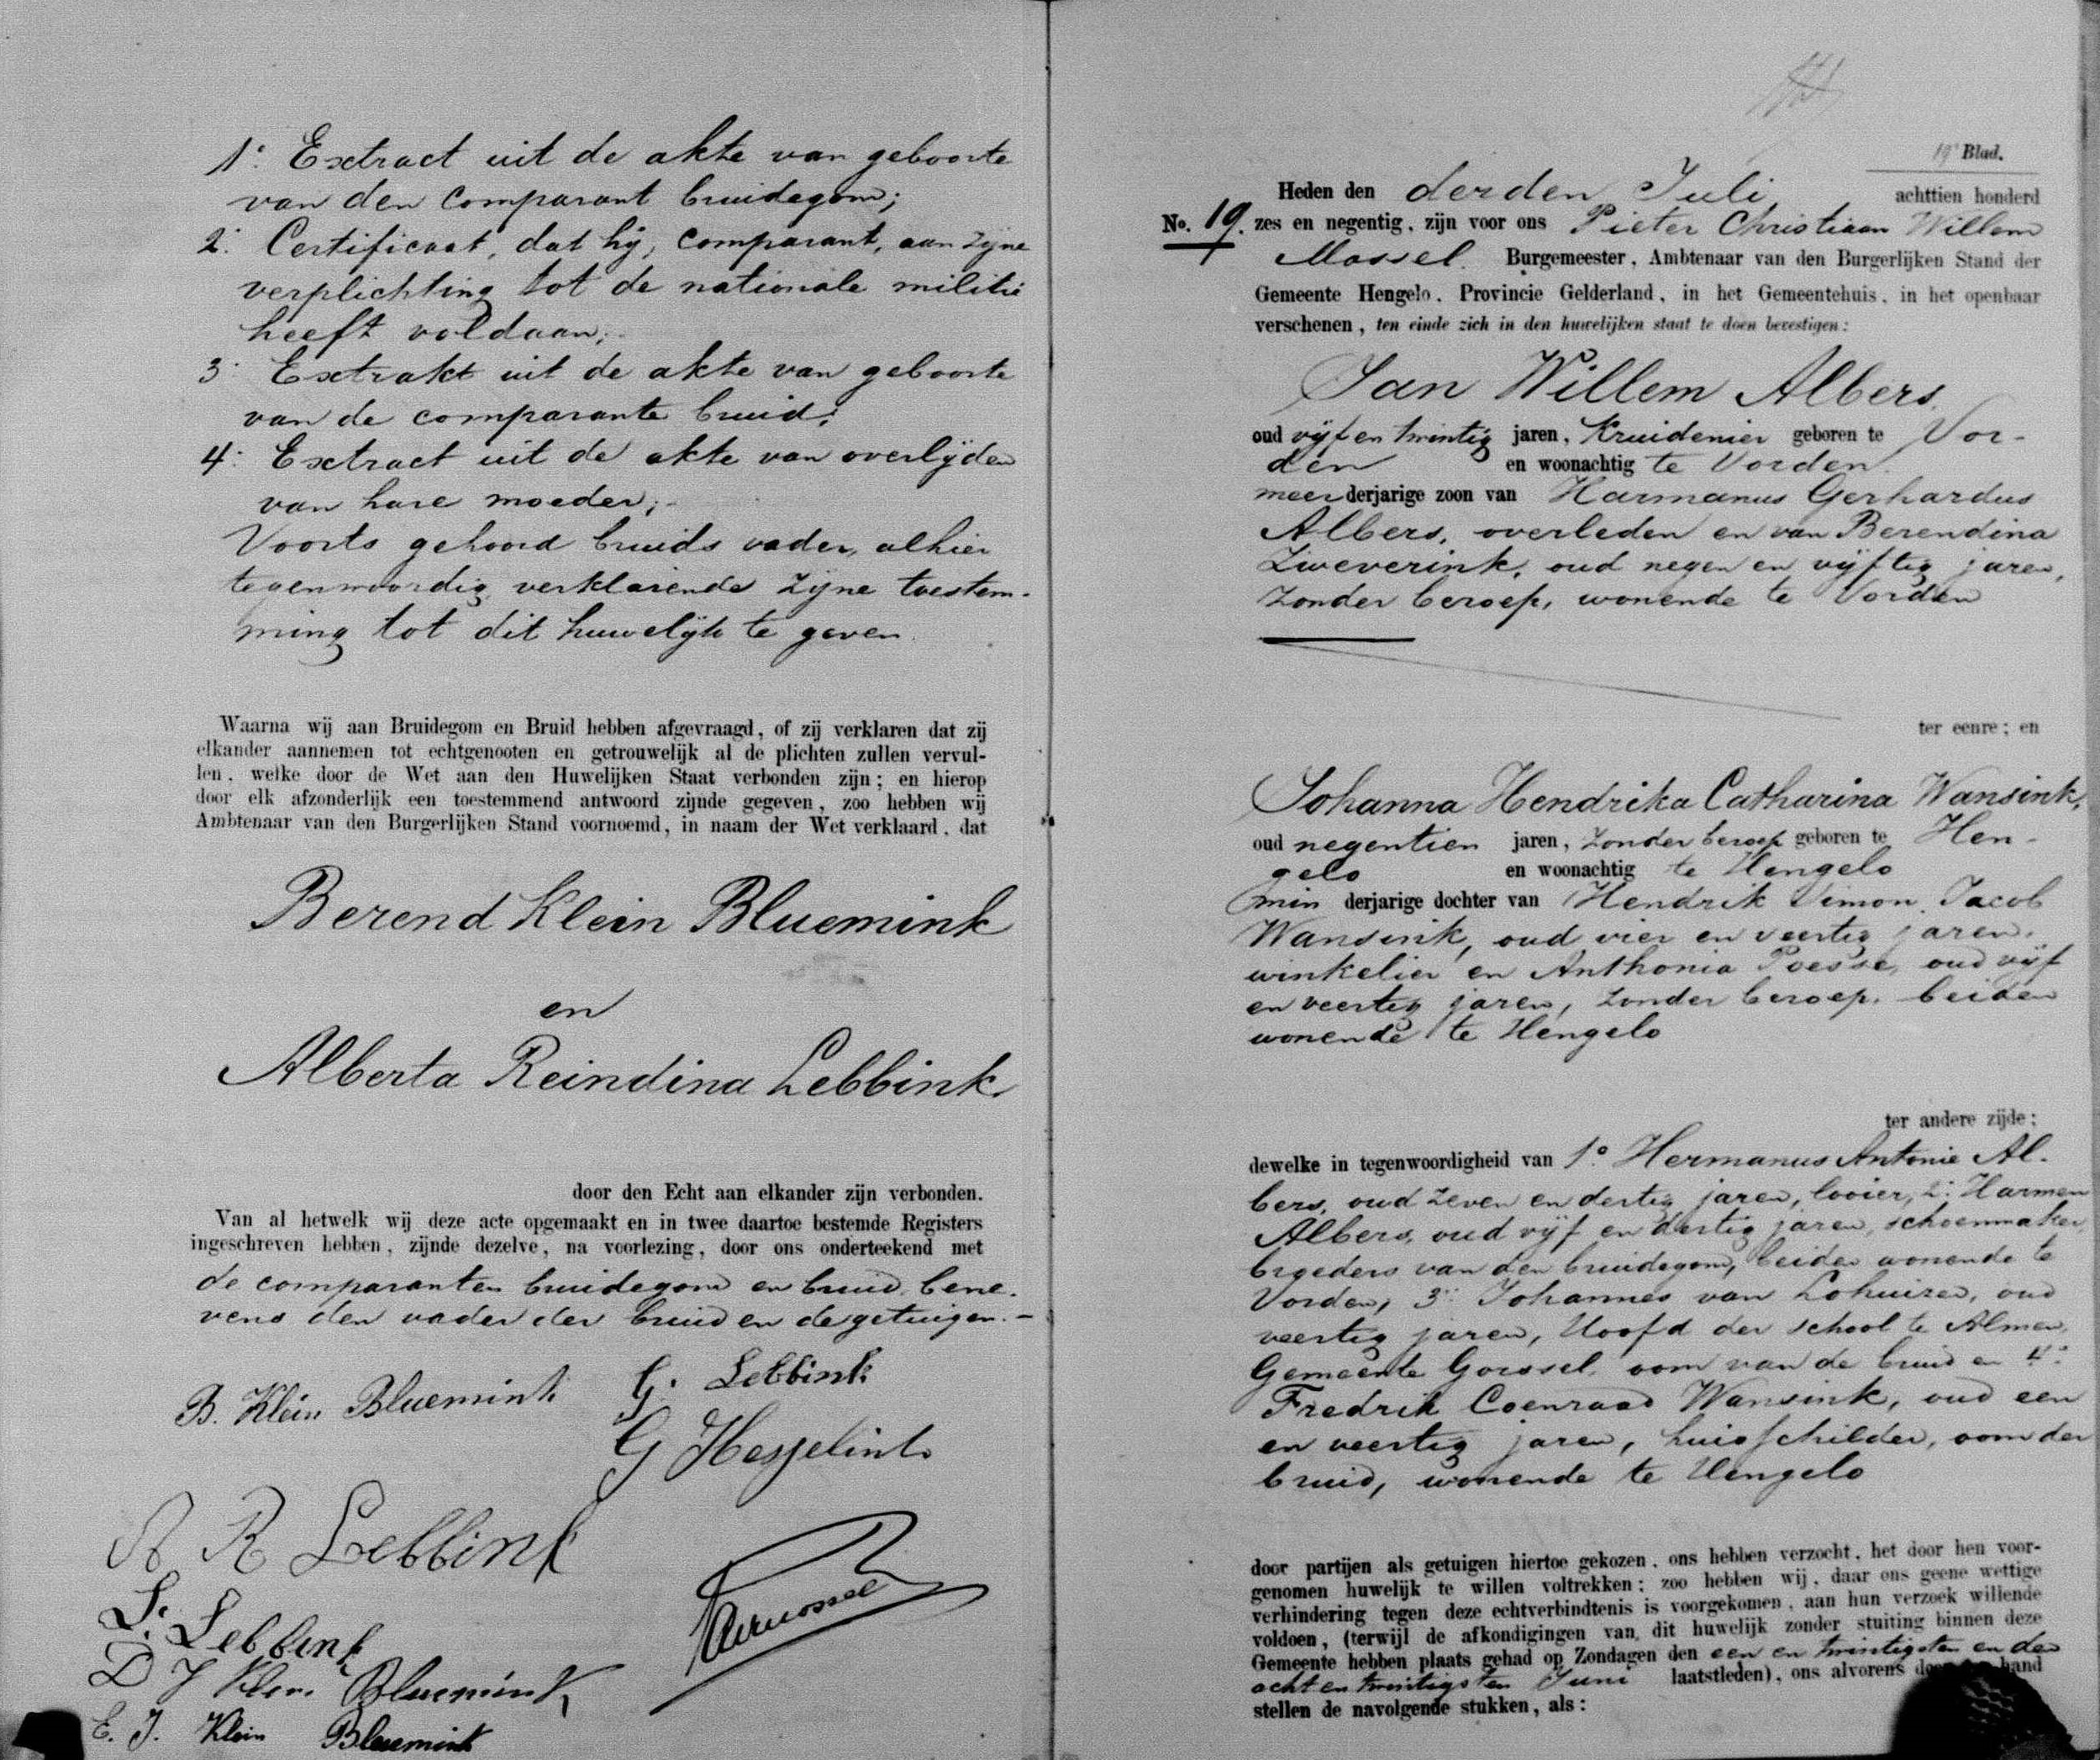 1o. Extract uit de akte van geboorte
van den comparant bruidegom;
2o. Certificaat, dat hij, comparant, aan zijne
verplichting tot de nationale militie
heeft voldaan;
3o Extrakt uit de akte van geboorte
van de comparante bruid;
4o. Extract uit de akte van overlijden
van hare moeder;
Voorts gehoord bruids vader, alhier
tegenwoordig verklarende zijne toestem-
ming tot dit huwelijk te geven.
Waarna wij aan Bruidegom en Bruid hebben afgevraagd, of zij verklaren dat zij
elkander aannemen tot echtgenooten en getrouwelijk al de plichten zullen vervul-
len, welke door de Wet aan den Huwelijken Staat verbonden zijn; en hierop
door elk afzonderlijk een toestemmend antwoord zijnde gegeven, zoo hebben wij
Ambtenaar van den Burgerlijken Stand voornoemd, in naam der Wet verklaard, dat
Berend Klein Bluemink
en
Alberta Reindina Lebbink
door den Echt aan elkander zijn verbonden.
Van al hetwelk wij deze acte opgemaakt en in twee daartoe bestemde Registers
ingeschreven hebben, zijnde dezelve, na voorlezing, door ons onderteekend met
de comparanten bruidegom en bruid, bene-
vens den vader der bruid en de getuigen.-
B. Klein Bluemink G. Lebbink
G Hesselink
A R Lebbink
Lebbink
D J Klein Bluemink
E. J. Klein Bluemink
19e Blad.
Heden den derden Juli achttien honderd
No. 19. zes en negentig, zijn voor ons Pieter Christiaan Willem
Mossel. Burgemeester, Ambtenaar van den Burgerlijken Stand der
Gemeente Hengelo, Provincie Gelderland, in het Gemeentehuis, in het openbaar
verschenen, ten einde zich in den huwelijken staat te doen bevestigen:
Jan Willem Albers.
oud vijf en twintig jaren, Kruidenier geboren te Vor-
den en woonachtig te Vorden.
meerderjarige zoon van Harmanus Gerhardus
Albers, overleden en van Berendina
Zweverink, oud negen en vijftig jaren,
zonder beroep, wonende te Vorden
ter eenre; en
Johanna Hendrika Catharina Wansink,
oud negentien jaren, zonder beroep geboren te Hen-
gelo en woonachtig te Hengelo
min derjarige dochter van Hendrik Simon Jacob
Wansink, oud vier en veertig jaren,
winkelier en Anthonia Poesse, oud vijf
en veertig jaren, zonder beroep, beiden
wonende te Hengelo
ter andere zijde;
dewelke in tegenwoordigheid van 1o. Hermanus Antonie Al-
bers, oud zeven en dertig jaren, looier, 2o. Harmen
Albers, oud vijf en dertig jaren, schoenmaker,
broeders van den bruidegom, beiden wonende te
Vorden, 3o. Johannes van Lohuizen, oud
veertig jaren, Hoofd der school te Almen,
Gemeente Gorssel, oom van de bruid en 4o.
Fredrik Coenraad Wansink, oud een
en veertig jaren, huisschilder, oom der
bruid, wonende te Hengelo
door partijen als getuigen hiertoe gekozen, ons hebben verzocht, het door hen voor-
genomen huwelijk te willen voltrekken; zoo hebben wij, daar ons geene wettige
verhindering tegen deze echtverbindtenis is voorgekomen, aan hun verzoek willende
voldoen, (terwijl de afkondigingen van dit huwelijk zonder stuiting binnen deze
Gemeente hebben plaats gehad op Zondagen den een en twintigsten en den
acht en twintigsten Juni laatstleden), ons alvorens hand
stellen de navolgende stukken, als: